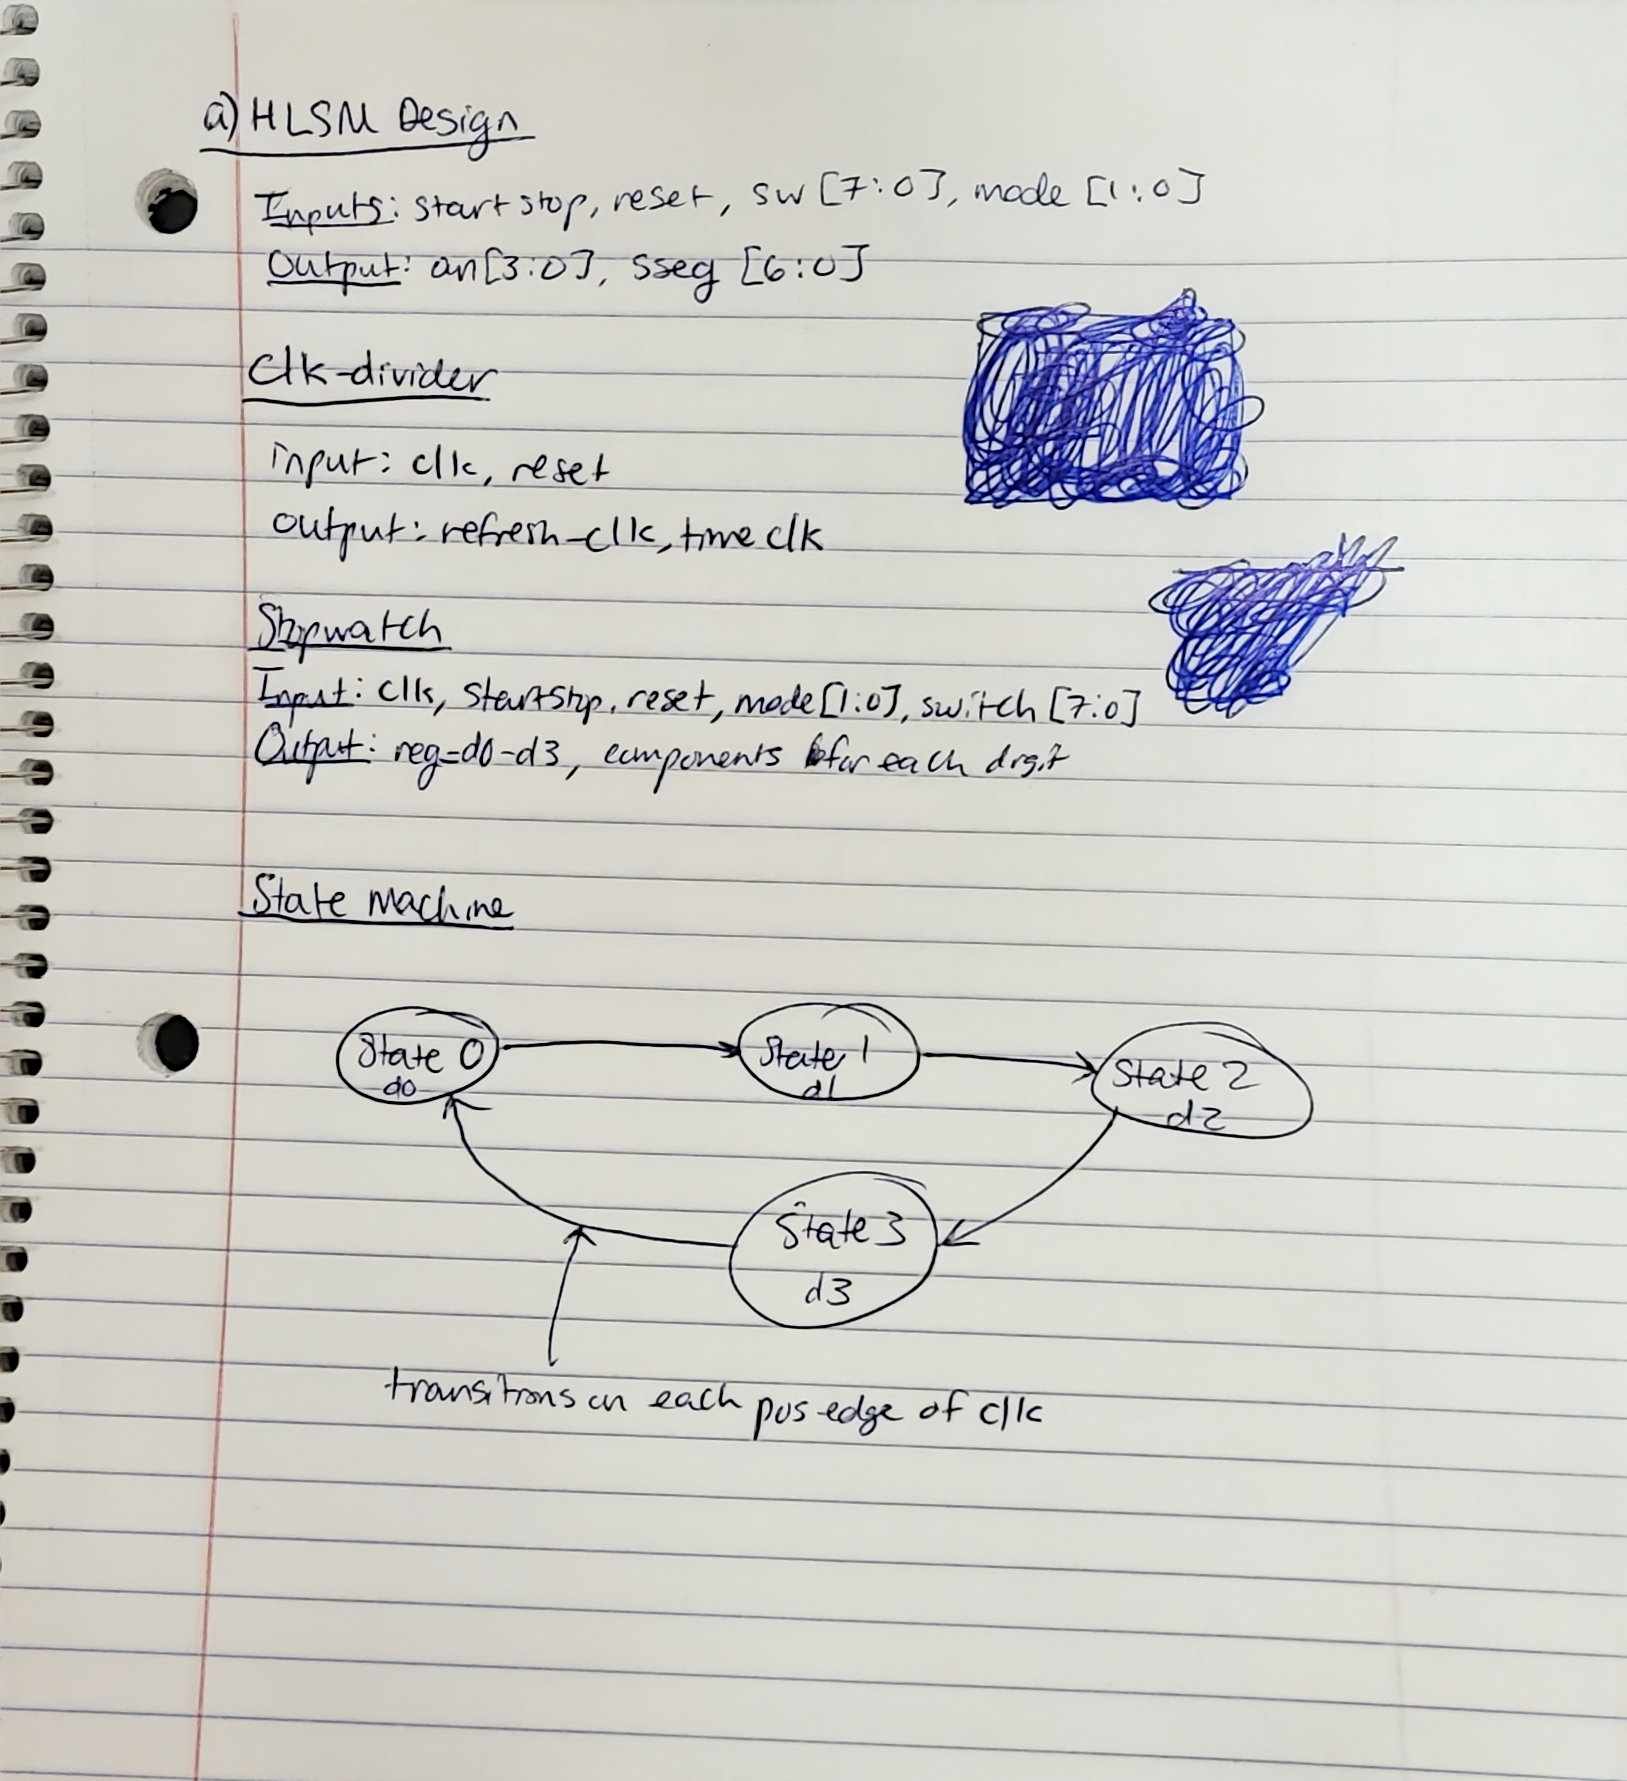 a) HLSM Design
Inputs: start stop, reset, sw [7:0], mode [1:0]
Output: an[3:0], sseg [6:0]
Clk-divider
input: clk, reset
output: refresh-clk, time clk
Stopwatch
Input: clk, startstop, reset, mode[1:0], switch [7:0]
Output: reg=d0-d3, components for each digit
State Machine
State 0
d0
State 1
d1
State 2
d2
State 3
d3
transitions on each pos edge of clk